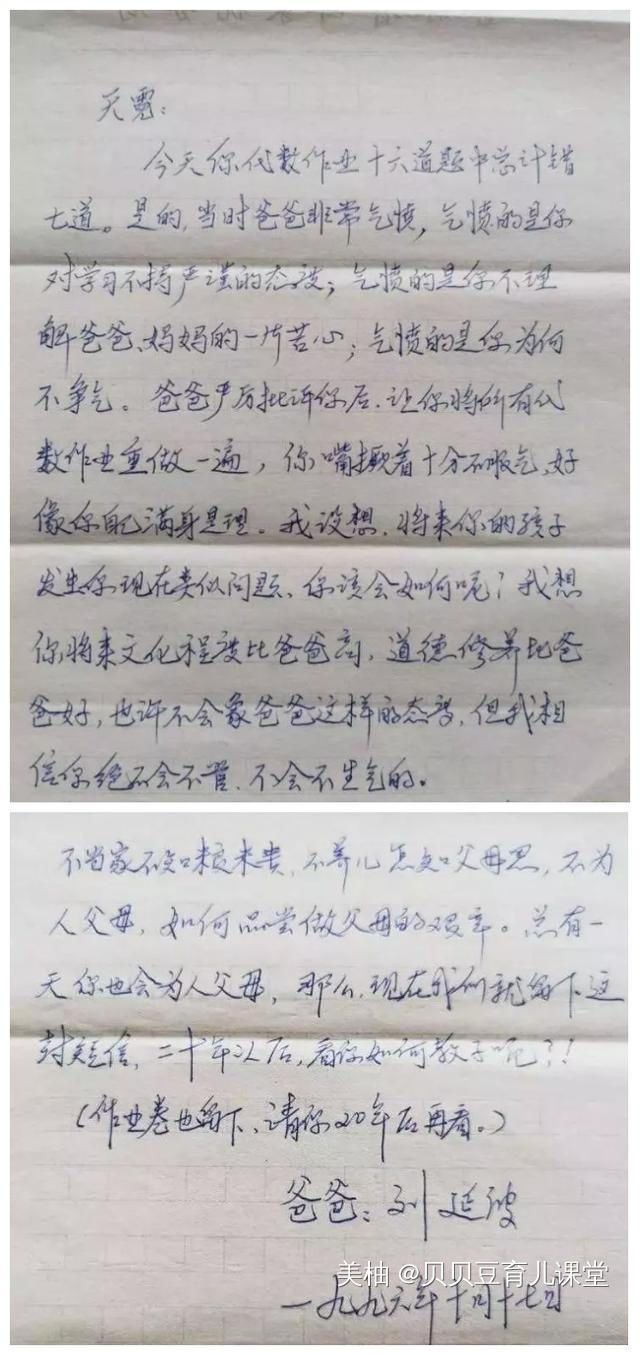 天霓:
今天你代数作业十六道题中总计错
七道。是的,当时爸爸非常气愤,气愤的是你
对学习不持严谨的态度;气愤的是你不理
解爸爸、妈妈的一片苦心;气愤的是你为何
不争气。爸爸严厉批评你后,让你将所有代
数作业重做一遍,你嘴撅着十分不服气,好
像你自己满身是理。我设想,将来你的孩子
发生你现在类似问题,你该会如何呢?我想
你将来文化程度比爸爸高,道德修养比爸
爸好,也许不会象爸爸这样的态度,但我相
信你绝不会不管,不会不生气的。
不当家不知粮米贵,不养儿怎知父母恩,不为
人父母,如何品尝做父母的艰辛。总有一
天你也会为人父母,那么,现在我们就留下这
封短信,二十年以后,看你如何教子呢?!
(作业卷也留下,请你20年后再看。)
爸爸:刘延波
美柚 @贝贝豆育儿课堂
一九九六年十月十七日